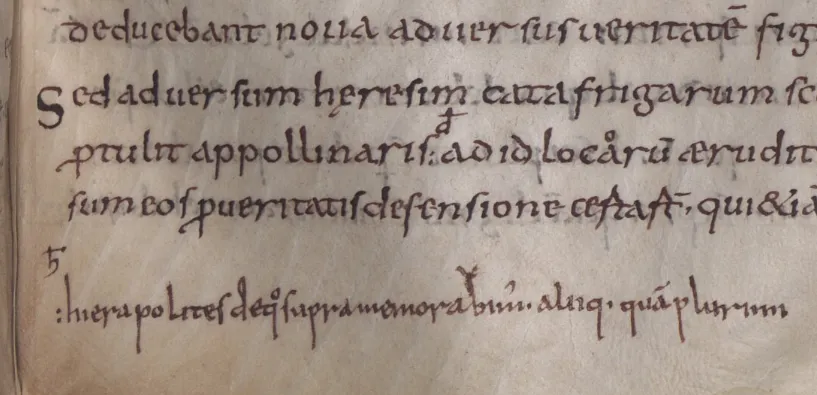 deducebant noua aduersus ueritatē fig
Sed aduersum hęresim catafrigarum sc
đ
ꝓtulit appollinaris: ad id locårū ærudit
sum eos ꝓ ueritatis defensione certast̄, qui & iā
ħ
:hierapolites de qͦ supra memorabim᾽. aliiq. quā plurimi